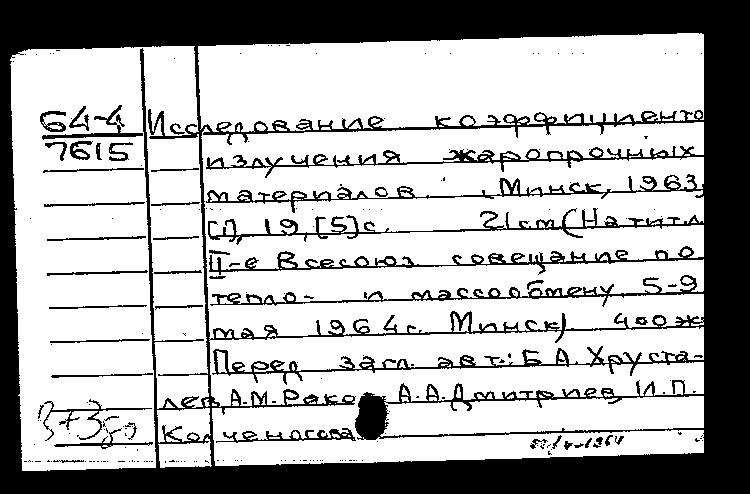 64-4 Исследование коэффициенто
7615 излучения жаропрочных
материалов. Минск, 1963,
[1], 19, [5] с. 21 см (На титл.
II-е Всесоюз. совещание по
тепло- и массообмену. 5-9
мая 1964 г. Минск). 400 экз
Перед загл. авт.: Б.А. Хруста-
лев, А.М. Раков, А.А. Дмитриев, И.П.
Колченогова